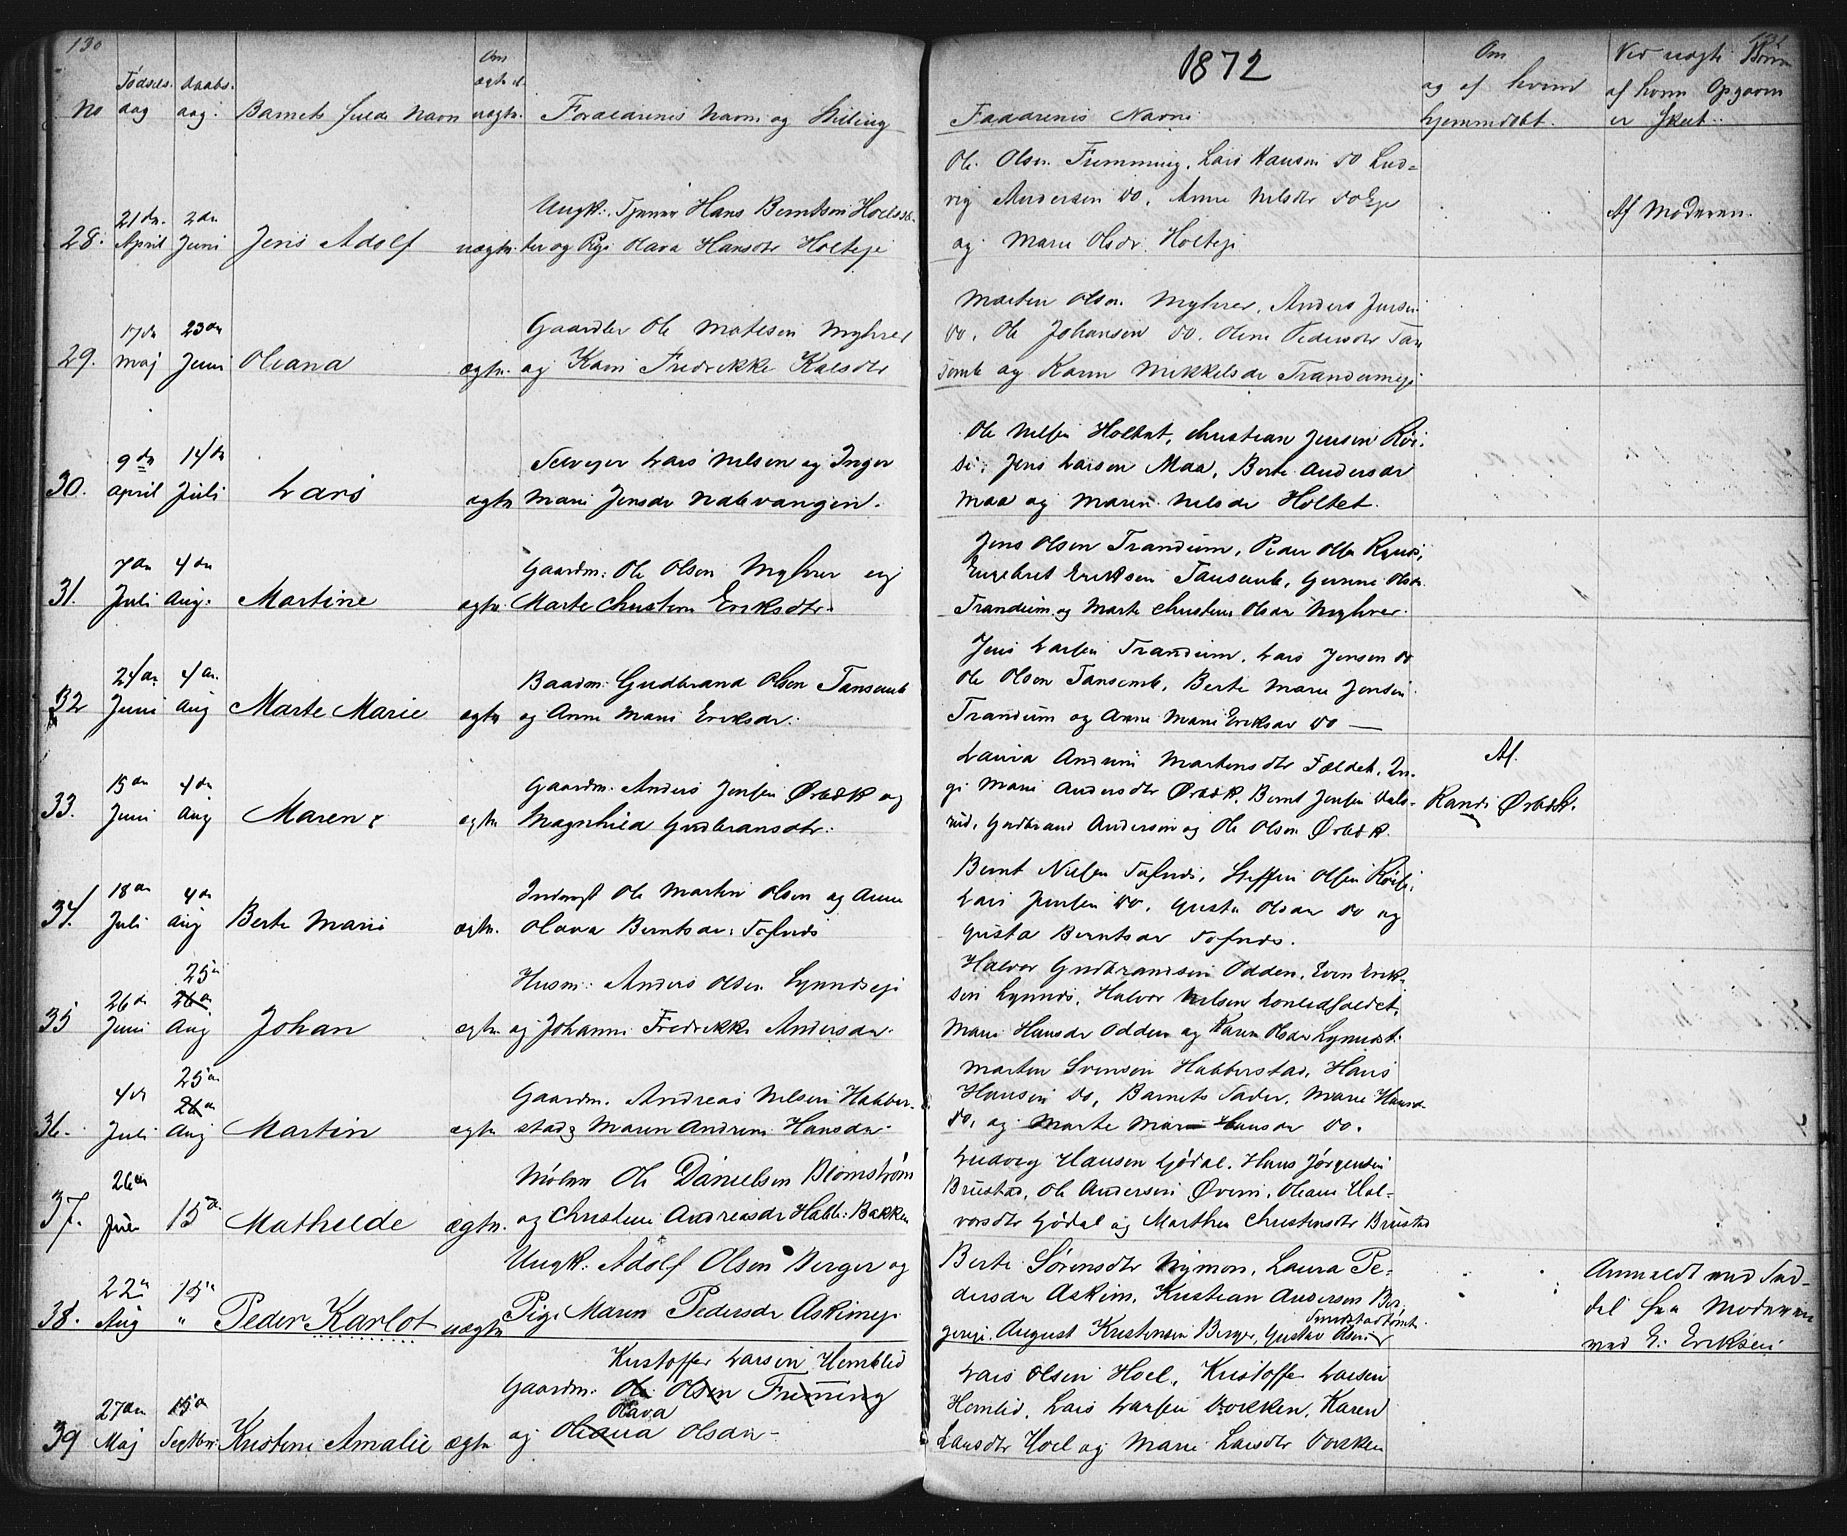 130
1872
131
No
Fødsels-
dag
Daabs-
dag.
Barnets fulde Navn
Om
ægte el.
uægte.
Forældrenes Navn og Stilling
Faddernes Navne
Om
og af hvem
hjemmedøbt.
Ved uægte Børn
af hvem Opgaven
er skeet.
28.
21de
April
2den
Juni
Jens Adolf
uægte
Ungk: Tjener Hans Berntsen
og Pige Olava Hansdtr Holteje
Ole Olsen Fremming, Lars Hansen do Lud-
vig Andersen do, Anne Nilsdtr do Eje
og Marie Olsdr. Holteje
Af Moderen.
29.
17de
Maj
23de
Juni
Oleana
ægte.
Gaardbr Ole Matisen Myhrer
og Karen Fredrikke Karlsdtr
Morten Olsen Myhrer, Anders Jensen
do, Ole Johansen do. Oline Pedersdtr Tan
semb og Karen Mikkelsdr Trandumeje
30.
9de
April
14de
Juli
Lars
ægte
Selvejer Lars Nilsen og Inger
Marie Jensdr Nabevangen.
Ole Nilsen Holtet, Christian Jensen
Jens Larsen Maa, Berte Andersdr
Maa og Maren Nilsdr Holtet.
31.
7de
Juli
4de
Aug.
Martine
ægte.
Gaardm: Ole Olsen Myhrer og
Marte Christine Eriksdtr.
Jens Olsen Trandum, Peder Olsen
Engebret Eriksen Tansemb, Gunne Olsdr.
Trandum og Marte Christine Olsdr Myhrer.
32
24de
Juni
4de
Aug
Marte Marie
ægte
Baadsm: Gudbrand Olsen Tansemb
og Anne Marie Eriksdr.
Jens Larsen Trandum, Lars Jensen do
Ole Olsen Tansemb, Berte Marie Jensen
Trandum og Anne Marie Eriksdr do —
33.
15de
Juni
4de
Aug
Maren
ægte
Gaardm: Anders Jensen Ørbæk og
Magnhild Gudbransdtr.
Laura Andrine Martensdtr Fældet, In-
ge Marie Andersdtr Ørbæk, Bernt Jensen Dals-
rud, Gudbrand Andersen og Ole Olsen Ørbæk.
Af.
Randi Ørbæk.
34.
18de
Juli
4de
Aug
Berte Marie
ægte.
Inderst Ole Martin Olsen og Anne
Olava Berntsdr: Tofsrud
Bernt Nilsen Tofsrud, Steffen Olsen
Lars Jensen do, Gusta Olsdr do og
Gusta Berntsdr Tofsrud.
35
26de
Juni
25de
26de
Aug
Johan
ægte.
Husm: Anders Olsen Lynndseje
og Johanne Fredrikke Andersdr.
Halvor Gudbrandsen Odden, Even Erik-
sen Lynnds, Halvor Nilsen
Marie Hansdr Odden og Karen Olsdr
36.
4de
Juli
25de
26de
Aug
Martin
ægte
Gaardm. Andreas Nilsen Habber-
stad og Maren Andrine Hansdr.
Morten Svensen Habberstad, Hans
Hansen do, Barnets Fader, Marie Hansdr
do, og Marte Marie Hansdr do.
37.
26de
Juli
15de
Mathelde
ægte.
Møller Ole Danielsen Blomstrøm
og Christine Andreasdr Habb: Bakken
Ludvig Hansen Gjødal, Hans Jørgensen
Brustad, Ole Andersen Øvern, Oleane Hal-
vorsdtr Gjødal og Marthea Christensdtr Brustad
38.
22de
Aug
15de
"
Peder Karlot
uægte
Ungk: Adolf Olsen Berger og
Pige Maren Pedersdr Askimeje
Berte Sørensdtr Nymon, Laura Pe-
dersdr Askim, Kristian Andersen Ber-
gereje, August Kristensen Berger, Gustav Olsen
Anmeldt ved Sed-
del fra Moderen
ved E: Eriksen
39
27de
Maj
15de
Septbr:
Kristine Amalie
ægte
Kristoffer Larsen Hemblid
Gaardm: Ole Olsen Fremming
Olava
og Oleana Olsdr -
Lars Olsen Hoel, Kristoffer Larsen
Hemlid, Lars Larsen Dokken, Karen
Larsdtr Hoel og Marie Larsdtr Dokken